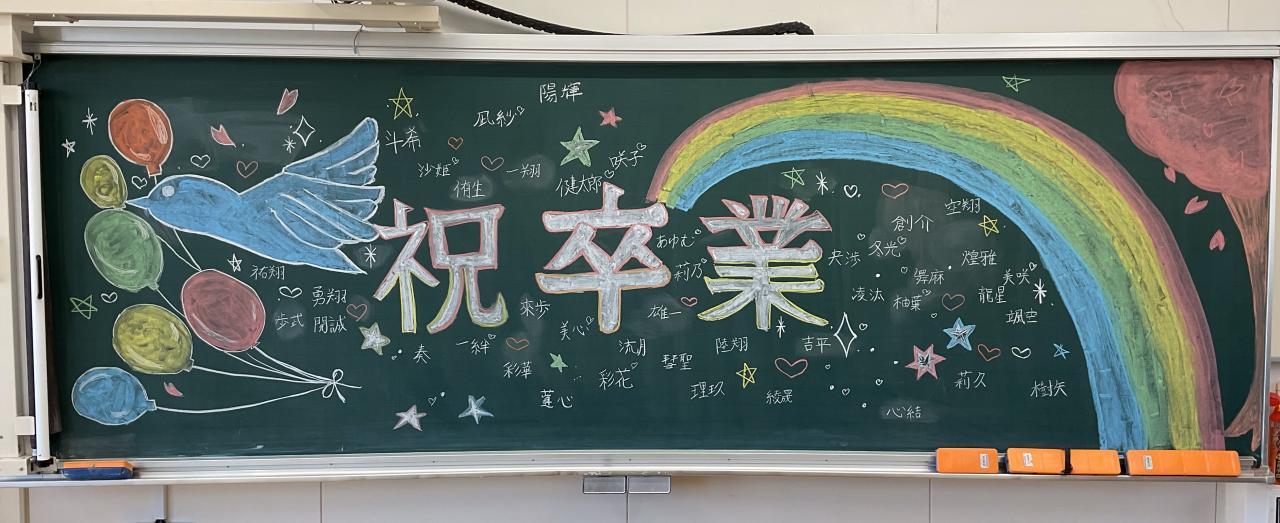 祝 卒 業
陽輝
凪紗
斗希
沙姫
一翔
侑生
健太郎
咲子
祐翔
勇翔
歩式
開誠
奏
一絆
來歩
美心
彩華
蓮心
彩花
流月
彗聖
理玖
綾晟
陸翔
吉平
雄一
莉乃
あゆむ
央渉
冬光
創介
空翔
煌雅
舞麻
凌汰
柚葉
龍星
美咲
颯空
莉久
樹矢
心結